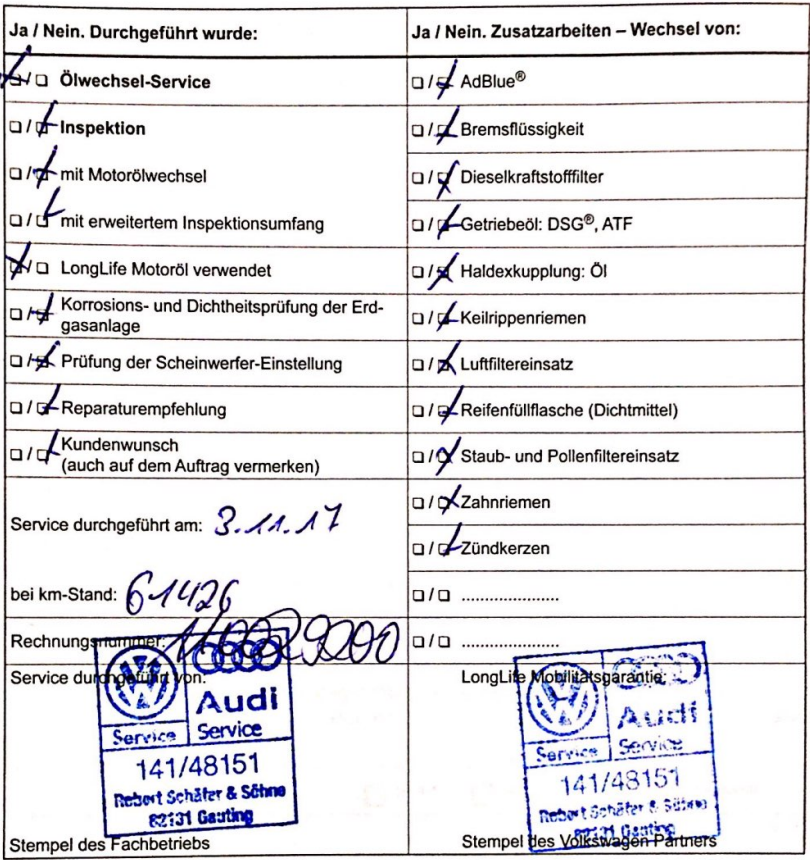 Ja / Nein. Durchgeführt wurde:
☐/☐ Ölwechsel-Service
☐/☐ Inspektion
☐/☐ mit Motorölwechsel
☐/☐ mit erweitertem Inspektionsumfang
☐/☐ LongLife Motoröl verwendet
☐/☐ Korrosions- und Dichtheitsprüfung der Erd-
gasanlage
☐/☐ Prüfung der Scheinwerfer-Einstellung
☐/☐ Reparaturempfehlung
☐/☐ Kundenwunsch
(auch auf dem Auftrag vermerken)
Service durchgeführt am: 3.11.17
bei km-Stand: 61426
Rechnungsnummer:
Service durchgeführt von:
Audi
Service Service
141/48151
Robert Schäfer & Söhne
82131 Gauting
Stempel des Fachbetriebs
Ja / Nein. Zusatzarbeiten – Wechsel von:
☐/☐ AdBlue®
☐/☐ Bremsflüssigkeit
☐/☐ Dieselkraftstofffilter
☐/☐ Getriebeöl: DSG®, ATF
☐/☐ Haldexkupplung: Öl
☐/☐ Keilrippenriemen
☐/☐ Luftfiltereinsatz
☐/☐ Reifenfüllflasche (Dichtmittel)
☐/☐ Staub- und Pollenfiltereinsatz
☐/☐ Zahnriemen
☐/☐ Zündkerzen
☐/☐ .....................
☐/☐ .....................
LongLife Mobilitätsgarantie:
Audi
Service Service
141/48151
Robert Schäfer & Söhne
82131 Gauting
Stempel des Volkswagen Partners